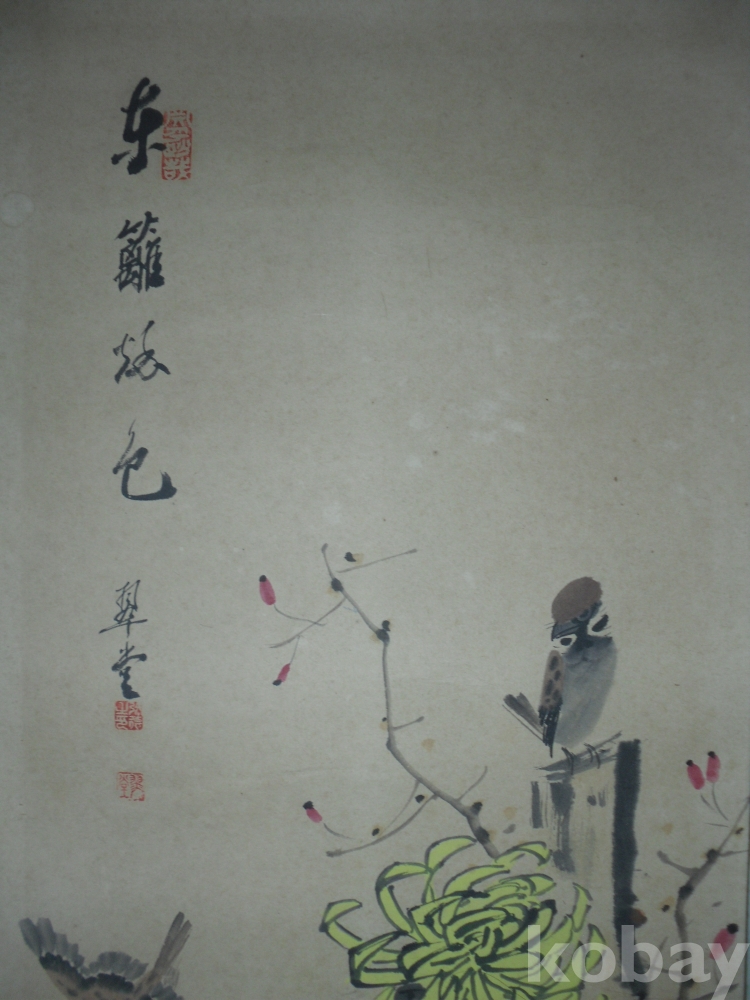 東籬秋色
翠堂
kobay